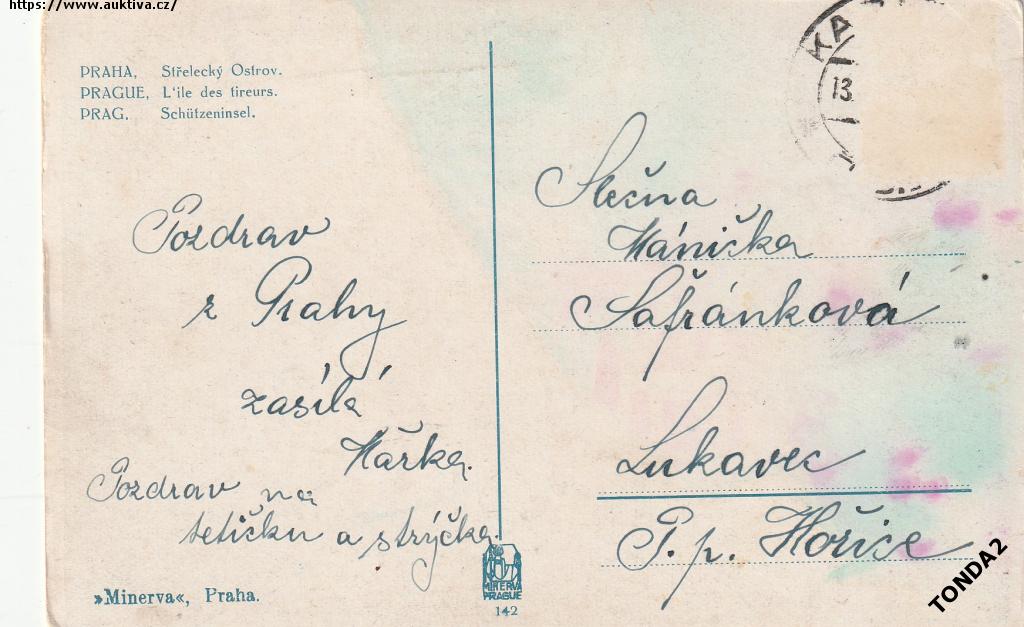 https://www.auktiva.cz/
PRAHA, Střelecký Ostrov.
PRAGUE, L'ile des tireurs.
PRAG, Schützeninsel.
Pozdrav
z Prahy
zasílá
Mářka.
Pozdrav na
tetičku a strýčka
»Minerva«, Praha.
MINERVA
PRAGUE
142
KA
13
Slečna
Mánička
Šafránková
Lukavec
P. p. Hořice
TONDA2